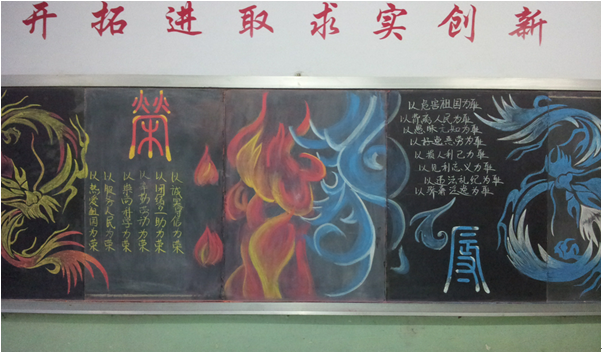 开拓进取求实创新
榮
以热爱祖国为荣
以服务人民为荣
以崇尚科学为荣
以辛勤劳动为荣
以团结互助为荣
以诚实守信为荣
以危害祖国为耻
以背离人民为耻
以愚昧无知为耻
以好逸恶劳为耻
以损人利己为耻
以见利忘义为耻
以违法乱纪为耻
以骄奢淫逸为耻
辱